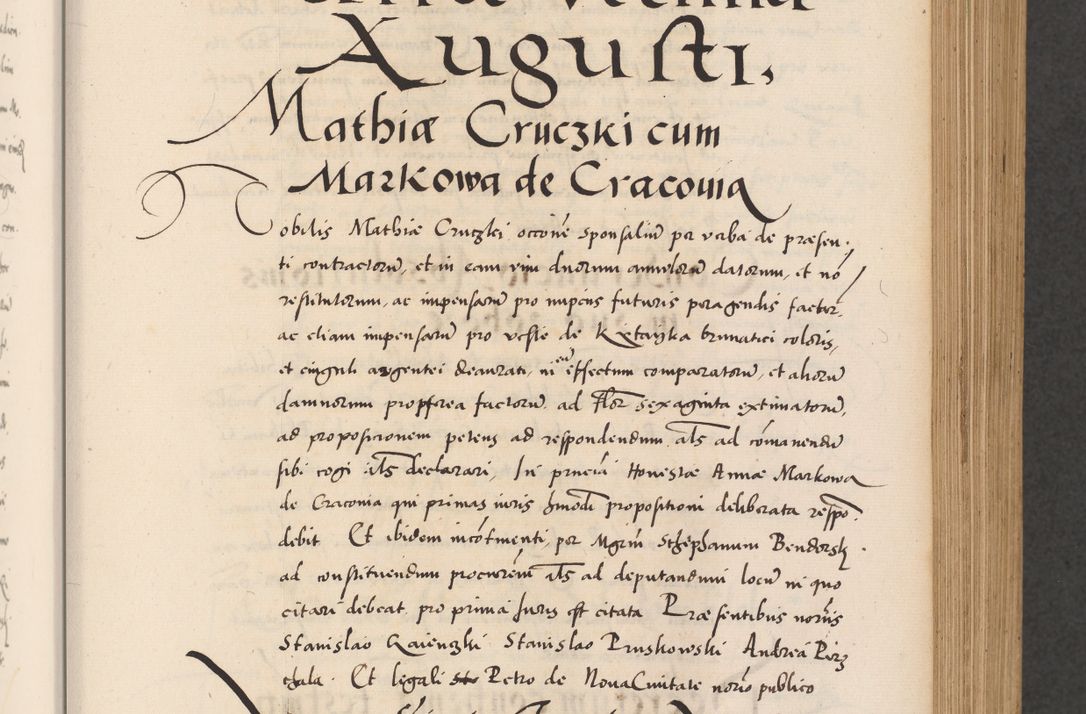 Augusti,
Mathiæ Cruczki cum
Markowa de Cracouia
Nobilis Mathiæ Cruczki occõne sponsaliũ per verba de præsen-
ti contractorũ, et in eam vim duorum annulorũ datorum, et nõ
restitutorum, ac impensarũ pro nupcijs futuris peragendis factorũ,
ac etiam impensarũ pro veste de Kxtayka brunatici coloris,
et cinguli argentei deaurati, in eũ effectum comparatorũ, et aliorũ
damnorum propterea factorũ ad Flor sexaginta extimatorũ,
ad proposicionem petens ad respondendum als ad cõmanendũ
sibi cogi als declarari, In pñcia Honestæ Annæ Markowa
de Cracouia qui primas iuris hmodi propositioni deliberata respõ-
debit Et ibidem incõtinenti, per Mgrm Stephanum Bendorsk
ad constituendum procurem als ad deputandum locũ in quo
citari debeat pro prima Juris est citata Præsentibus noriis
Stanislao Stanislao Pruskowski Andrea Pirz
chala. Et legali Petro de Noua Ciuitate norio publico